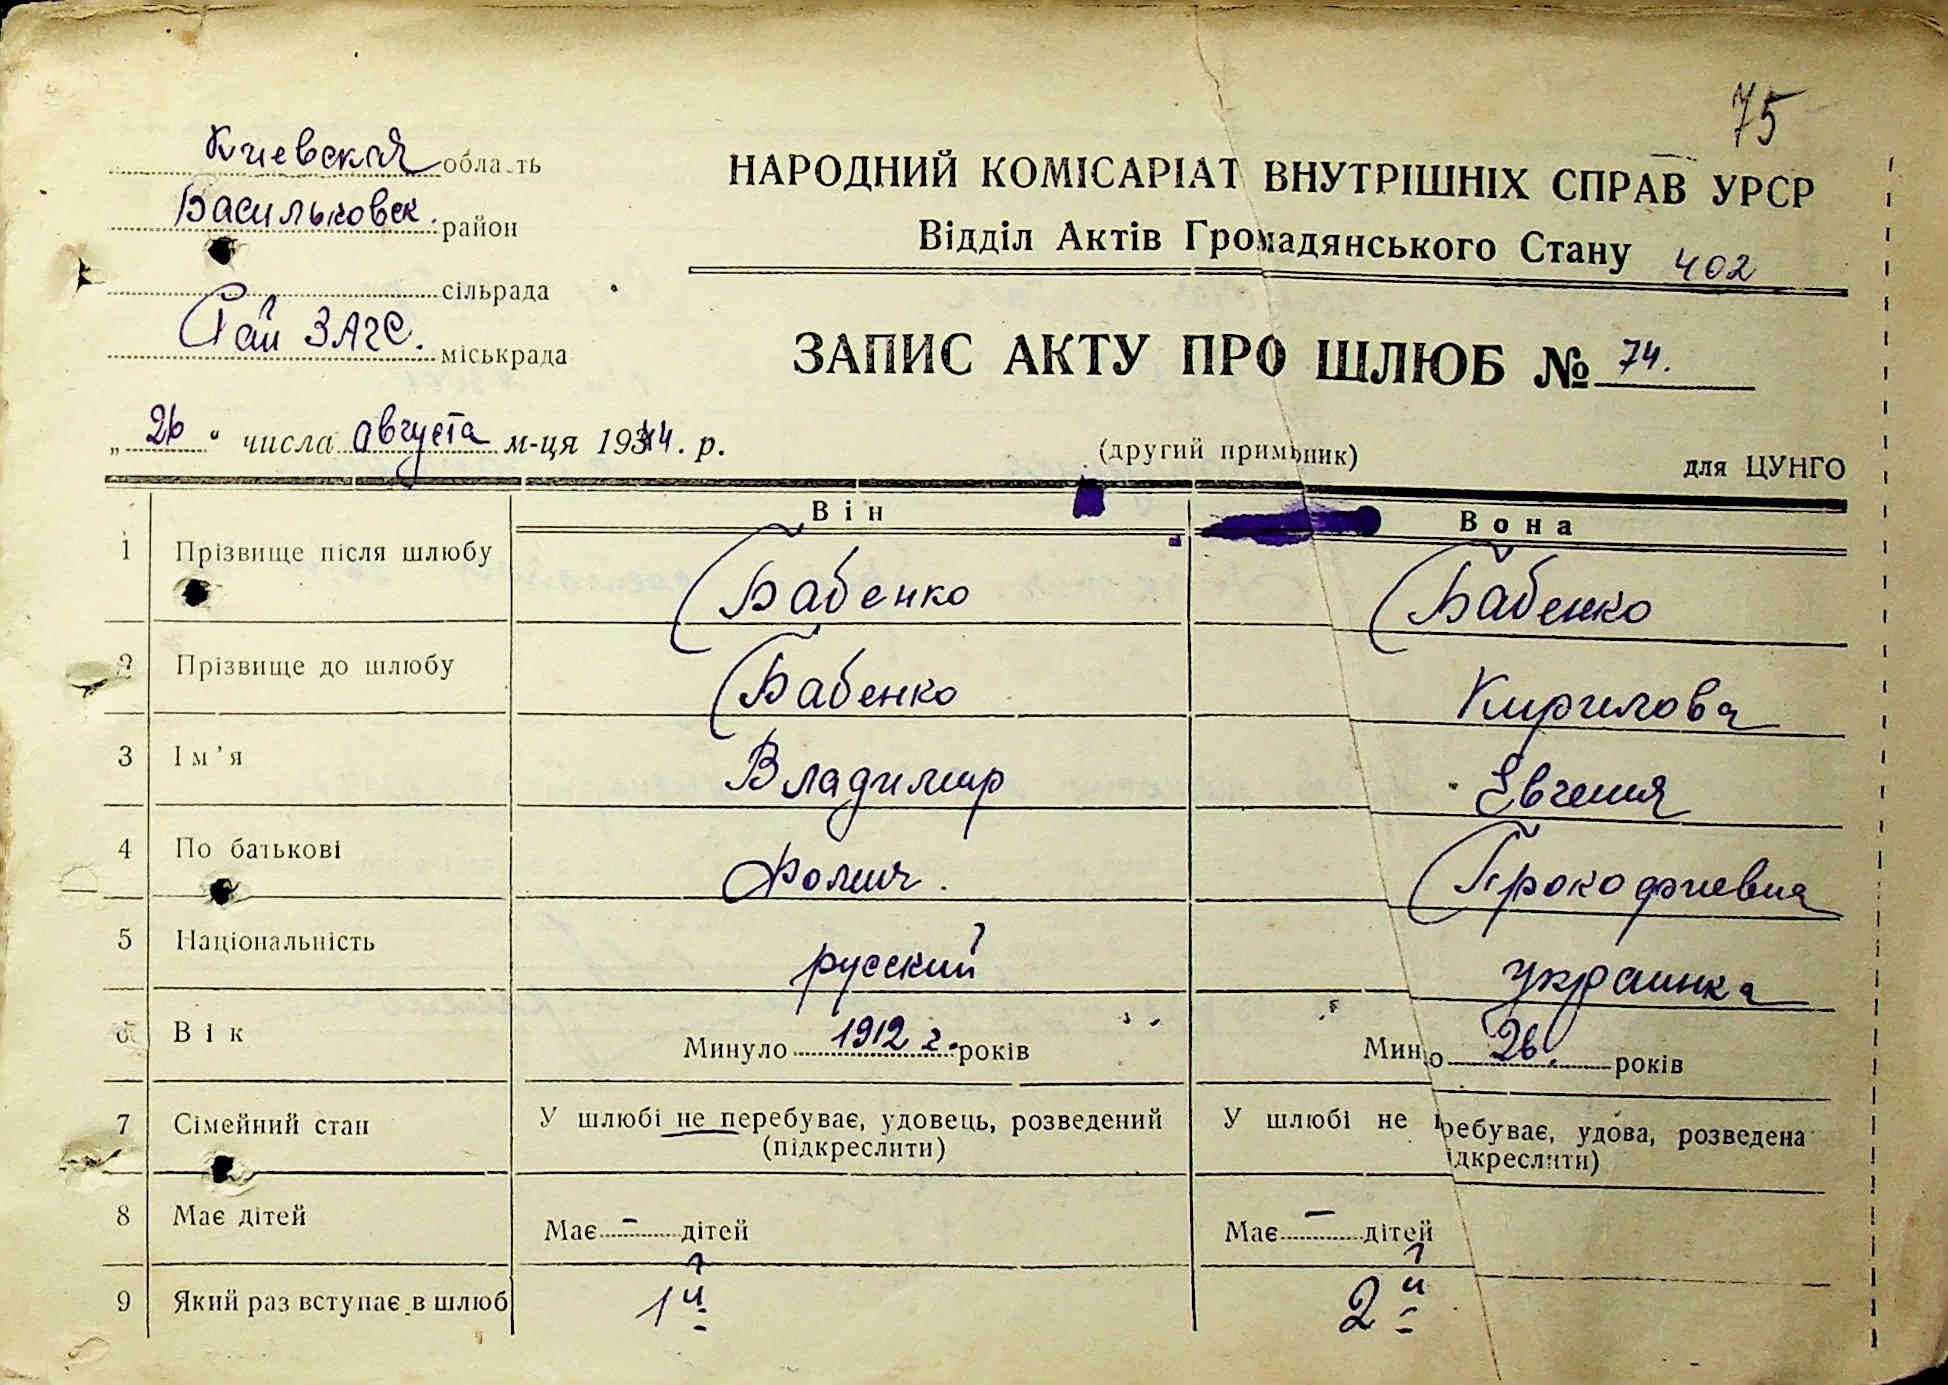 75
Киевская область
Васильковск. район
сільрада
Рай ЗАГС. міськрада
НАРОДНИЙ КОМІСАРІАТ ВНУТРІШНІХ СПРАВ УРСР
Відділ Актів Громадянського Стану 402
ЗАПИС АКТУ ПРО ШЛЮБ № 74.
„26“ числа августа м-ця 1944. р.
(другий примірник)
для ЦУНГО
Він Вона
1 Прізвище після шлюбу Бабенко Бабенко
2 Прізвище до шлюбу Бабенко Кирилова
3 Ім'я Владимир Евгения
4 По батькові Фомич. Прокофиевна
5 Національність русский украинка
6 Вік Минуло 1912 г. років Минуло 26. років
7 Сімейний стан У шлюбі не перебуває, удовець, розведений У шлюбі не перебуває, удова, розведена
(підкреслити) (підкреслити)
8 Має дітей Має – дітей Має – дітей
9 Який раз вступає в шлюб 1й 2й